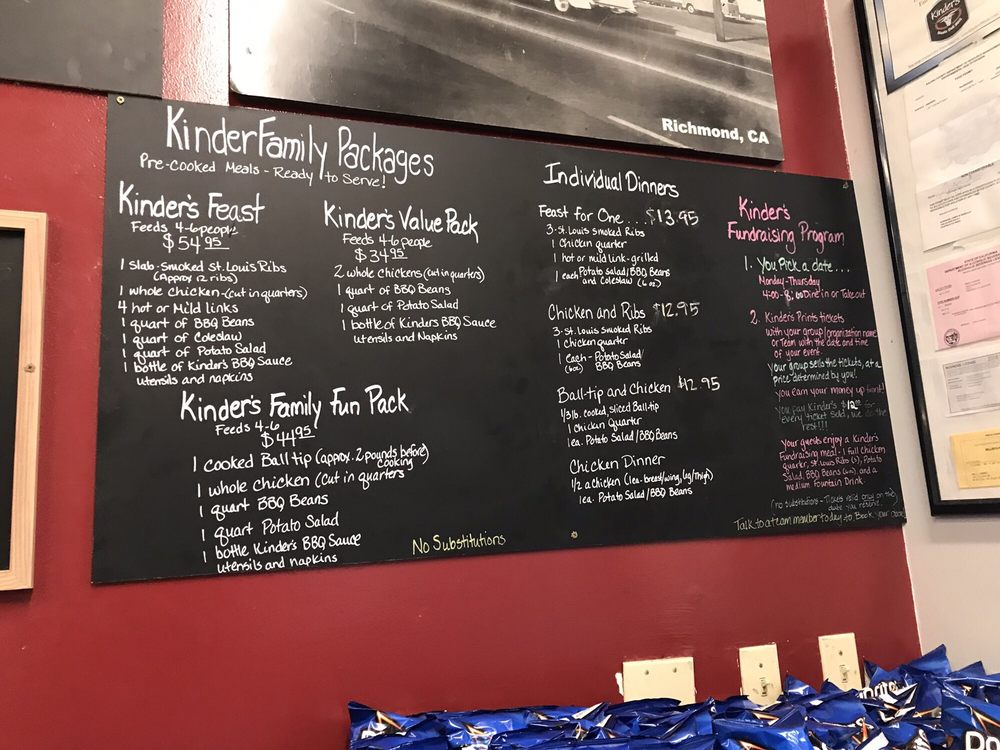 Kinder's
Richmond, CA
KinderFamily Packages
Pre-cooked Meals - Ready to Serve!
Kinder's Feast
Feeds 4-6 people
$54.95
1 slab-smoked St. Louis Ribs
(Approx 12 ribs)
1 whole chicken-(cut in quarters)
4 hot or Mild links
1 quart of BBQ Beans
1 quart of Coleslaw
1 quart of Potato Salad
1 bottle of Kinder's BBQ Sauce
utensils and napkins
Kinder's Value Pack
Feeds 4-6 people
$34.95
2 whole chickens (cut in quarters)
1 quart of BBQ Beans
1 quart of Potato Salad
1 bottle of Kinders BBQ Sauce
utensils and Napkins
Kinder's Family Fun Pack
Feeds 4-6
$44.95
1 cooked Ball tip (approx. 2 pounds before)
cooking
1 whole chicken (cut in quarters
1 quart BBQ Beans
1 quart Potato Salad
1 bottle Kinder's BBQ Sauce
utensils and napkins
No Substitutions
Individual Dinners
Feast for One... $13.95
3-St. Louis Smoked Ribs
1 Chicken quarter
1 hot or mild link-grilled
1 each Potato Salad/BBQ Beans
and Coleslaw (6 oz)
Chicken and Ribs $12.95
3-St. Louis Smoked Ribs
1 chicken quarter
1 each - Potato Salad/
(6oz) BBQ Beans
Ball-tip and Chicken $12.95
1/3 lb. cooked, sliced Ball-tip
1 Chicken Quarter
1 ea. Potato Salad/BBQ Beans
Chicken Dinner
1/2 a chicken (1ea-breast/wing, leg/thigh)
1 ea. Potato Salad/BBQ Beans
Kinder's
Fundraising Program
1. You Pick a date...
Monday-Thursday
4:00-8:00 Dine in or Take out
2. Kinder's Prints tickets
with your group/organization name
or Team with the date and time
of your event.
Your group sells the tickets, at a
price determined by you!
you earn your money up front!
You pay Kinder's $12.00 for
every ticket sold, we do the
rest!!!
Your guests enjoy a Kinder's
Fundraising meal - 1 full chicken
quarter, St. Louis Ribs (2), Potato
Salad, BBQ Beans (6oz), and a
medium Fountain Drink.
(no substitutions - Tickets valid only on the
date you reserve.
Talk to a team member today to Book your